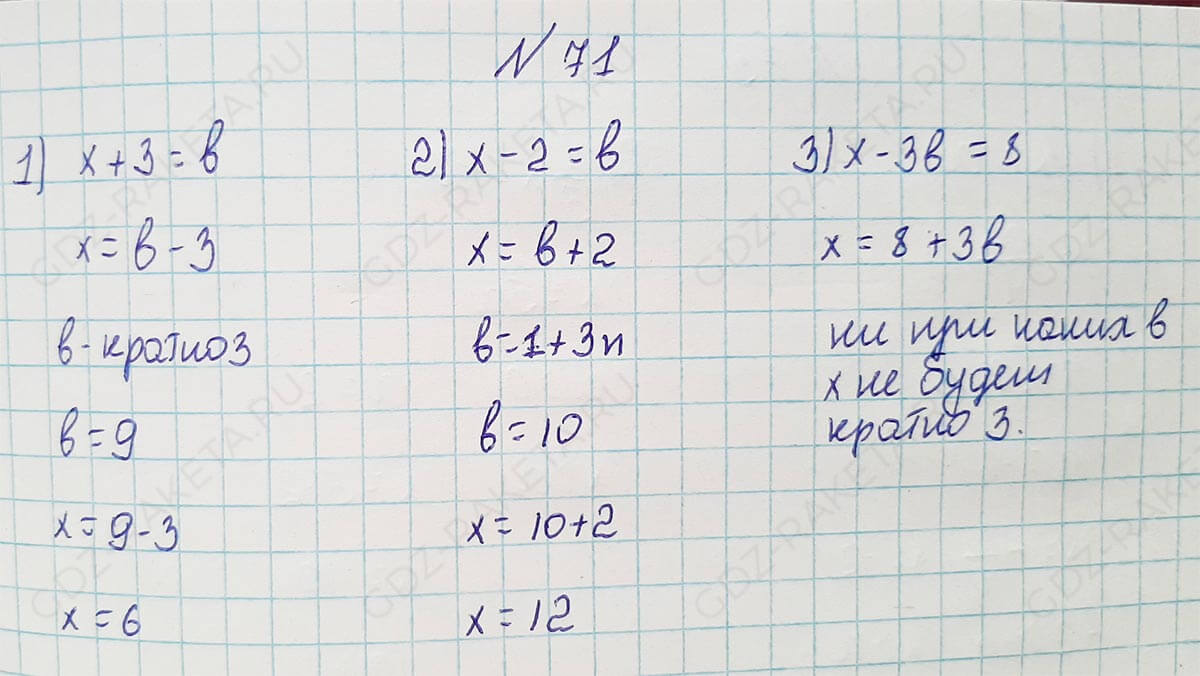 N 71
1) x + 3 = в
x = в - 3
в - кратно 3
в = 9
x = 9 - 3
x = 6
2) x - 2 = в
x = в + 2
в = 1 + 3n
в = 10
x = 10 + 2
x = 12
3) x - 3в = 8
x = 8 + 3в
ни при каких в
x не будет
кратно 3.
GDZ-RAKETA.RU